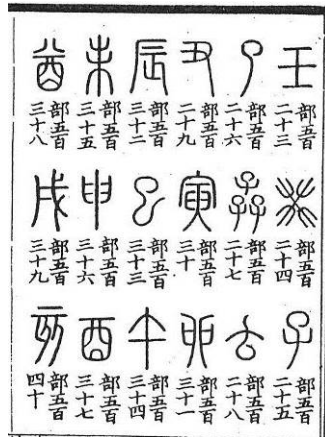 壬 部五百二十三
癸 部五百二十四
子 部五百二十五
了 部五百二十六
孨 部五百二十七
𠫓 部五百二十八
丑 部五百二十九
寅 部五百三十
卯 部五百三十一
辰 部五百三十二
巳 部五百三十三
午 部五百三十四
未 部五百三十五
申 部五百三十六
酉 部五百三十七
酋 部五百三十八
戌 部五百三十九
亥 部五百四十